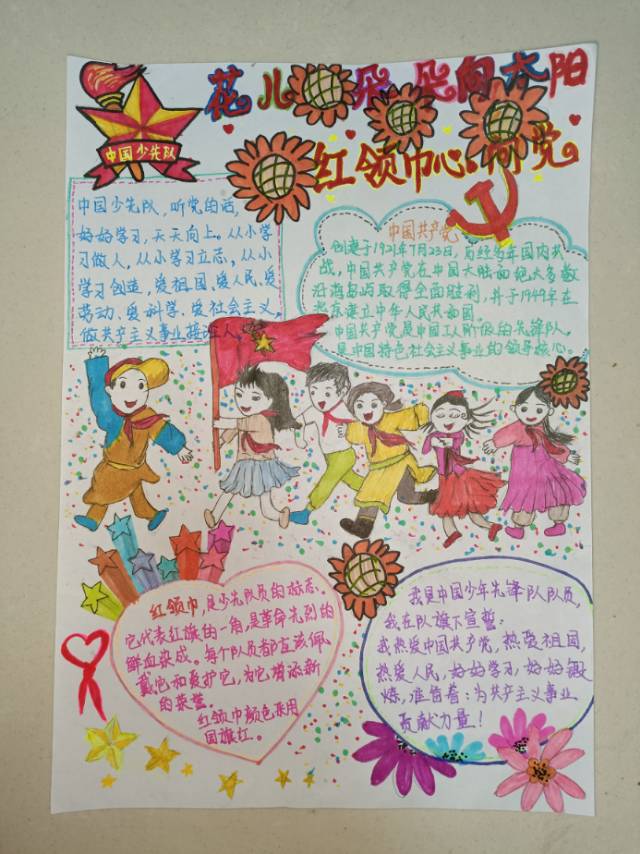 花儿朵朵向太阳
红领巾心向党
中国少先队
中国少先队,听党的话,
好好学习,天天向上。从小学
习做人,从小学习立志,从小
学习创造,爱祖国、爱人民、爱
劳动、爱科学、爱社会主义,
做共产主义事业接班人。
中国共产党
创建于1921年7月23日,历经多年国内共
战,中国共产党在中国大陆面绝大多数
沿海岛屿取得全面胜利,并于1949年在
北京建立中华人民共和国。
中国共产党是中国工人阶级的先锋队,
是中国特色社会主义事业的领导核心。
红领巾,是少先队员的标志。
它代表红旗的一角,是革命先烈的
鲜血染成。每个队员都应该佩
戴它和爱护它,为它增添新
的荣誉。
红领巾颜色采用
国旗红。
我是中国少年先锋队队员,
我在队旗下宣誓:
我热爱中国共产党,热爱祖国,
热爱人民,好好学习,好好锻
炼,准备着:为共产主义事业
贡献力量!